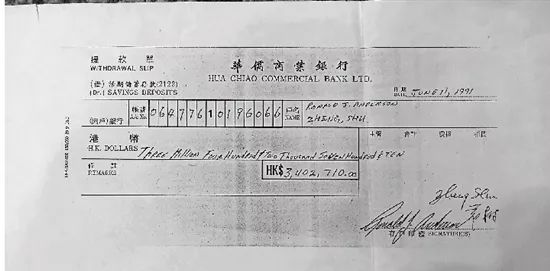 提款單
WITHDRAWAL SLIP
華僑商業銀行
HUA CHIAO COMMERCIAL BANK LTD.
(Dr.) SAVINGS DEPOSITS
日期
DATE JUNE 11, 1991
賬號
戶名
NAME
RONALD J. ANDERSON
ZHENG, SHU
港幣
H.K. DOLLARS THREE Million FOUR HUNDRED & TWO THOUSAND SEVEN HUNDRED & TEN
REMARKS
HK$ 3,402,710.00
Zheng Shu
Ronald J. Anderson
SIGNATURE(S)